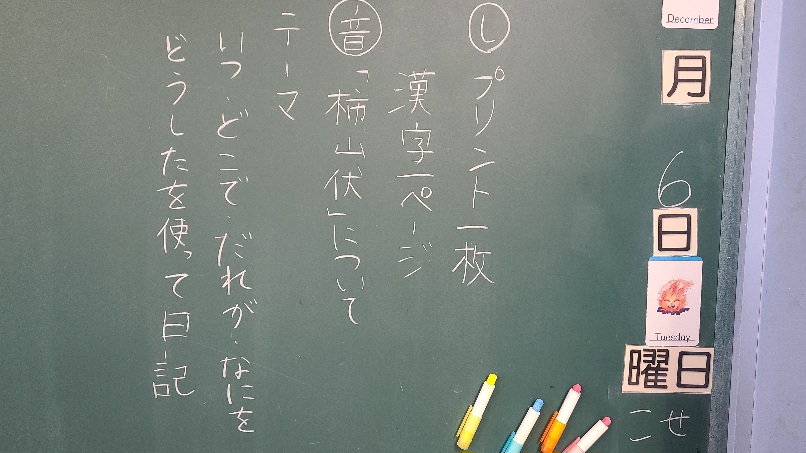 December
月
6
日
Tuesday
曜日
せ
こ
し プリント一枚
漢字一ページ
音 「柿山伏」について
テーマ
いつ・どこで・だれが・なにを
どうしたを使って日記